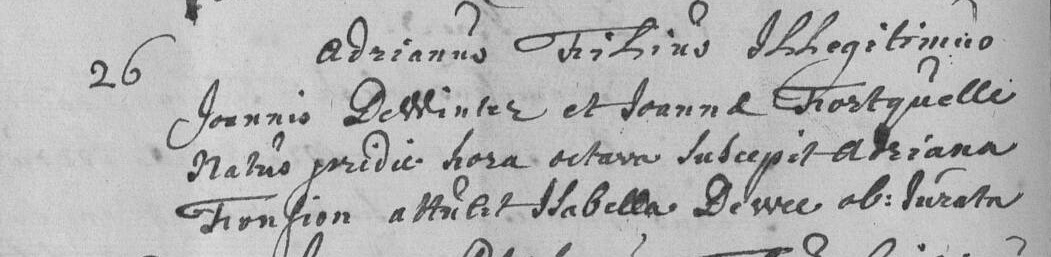 26 Adrianus Filius Illegitimus
Joannis DeWinter et Joannæ Fortquelle
Natus pridie hora octava suscepit Adriana
Fonsion attulit Isabella Dewee ob: Jurata